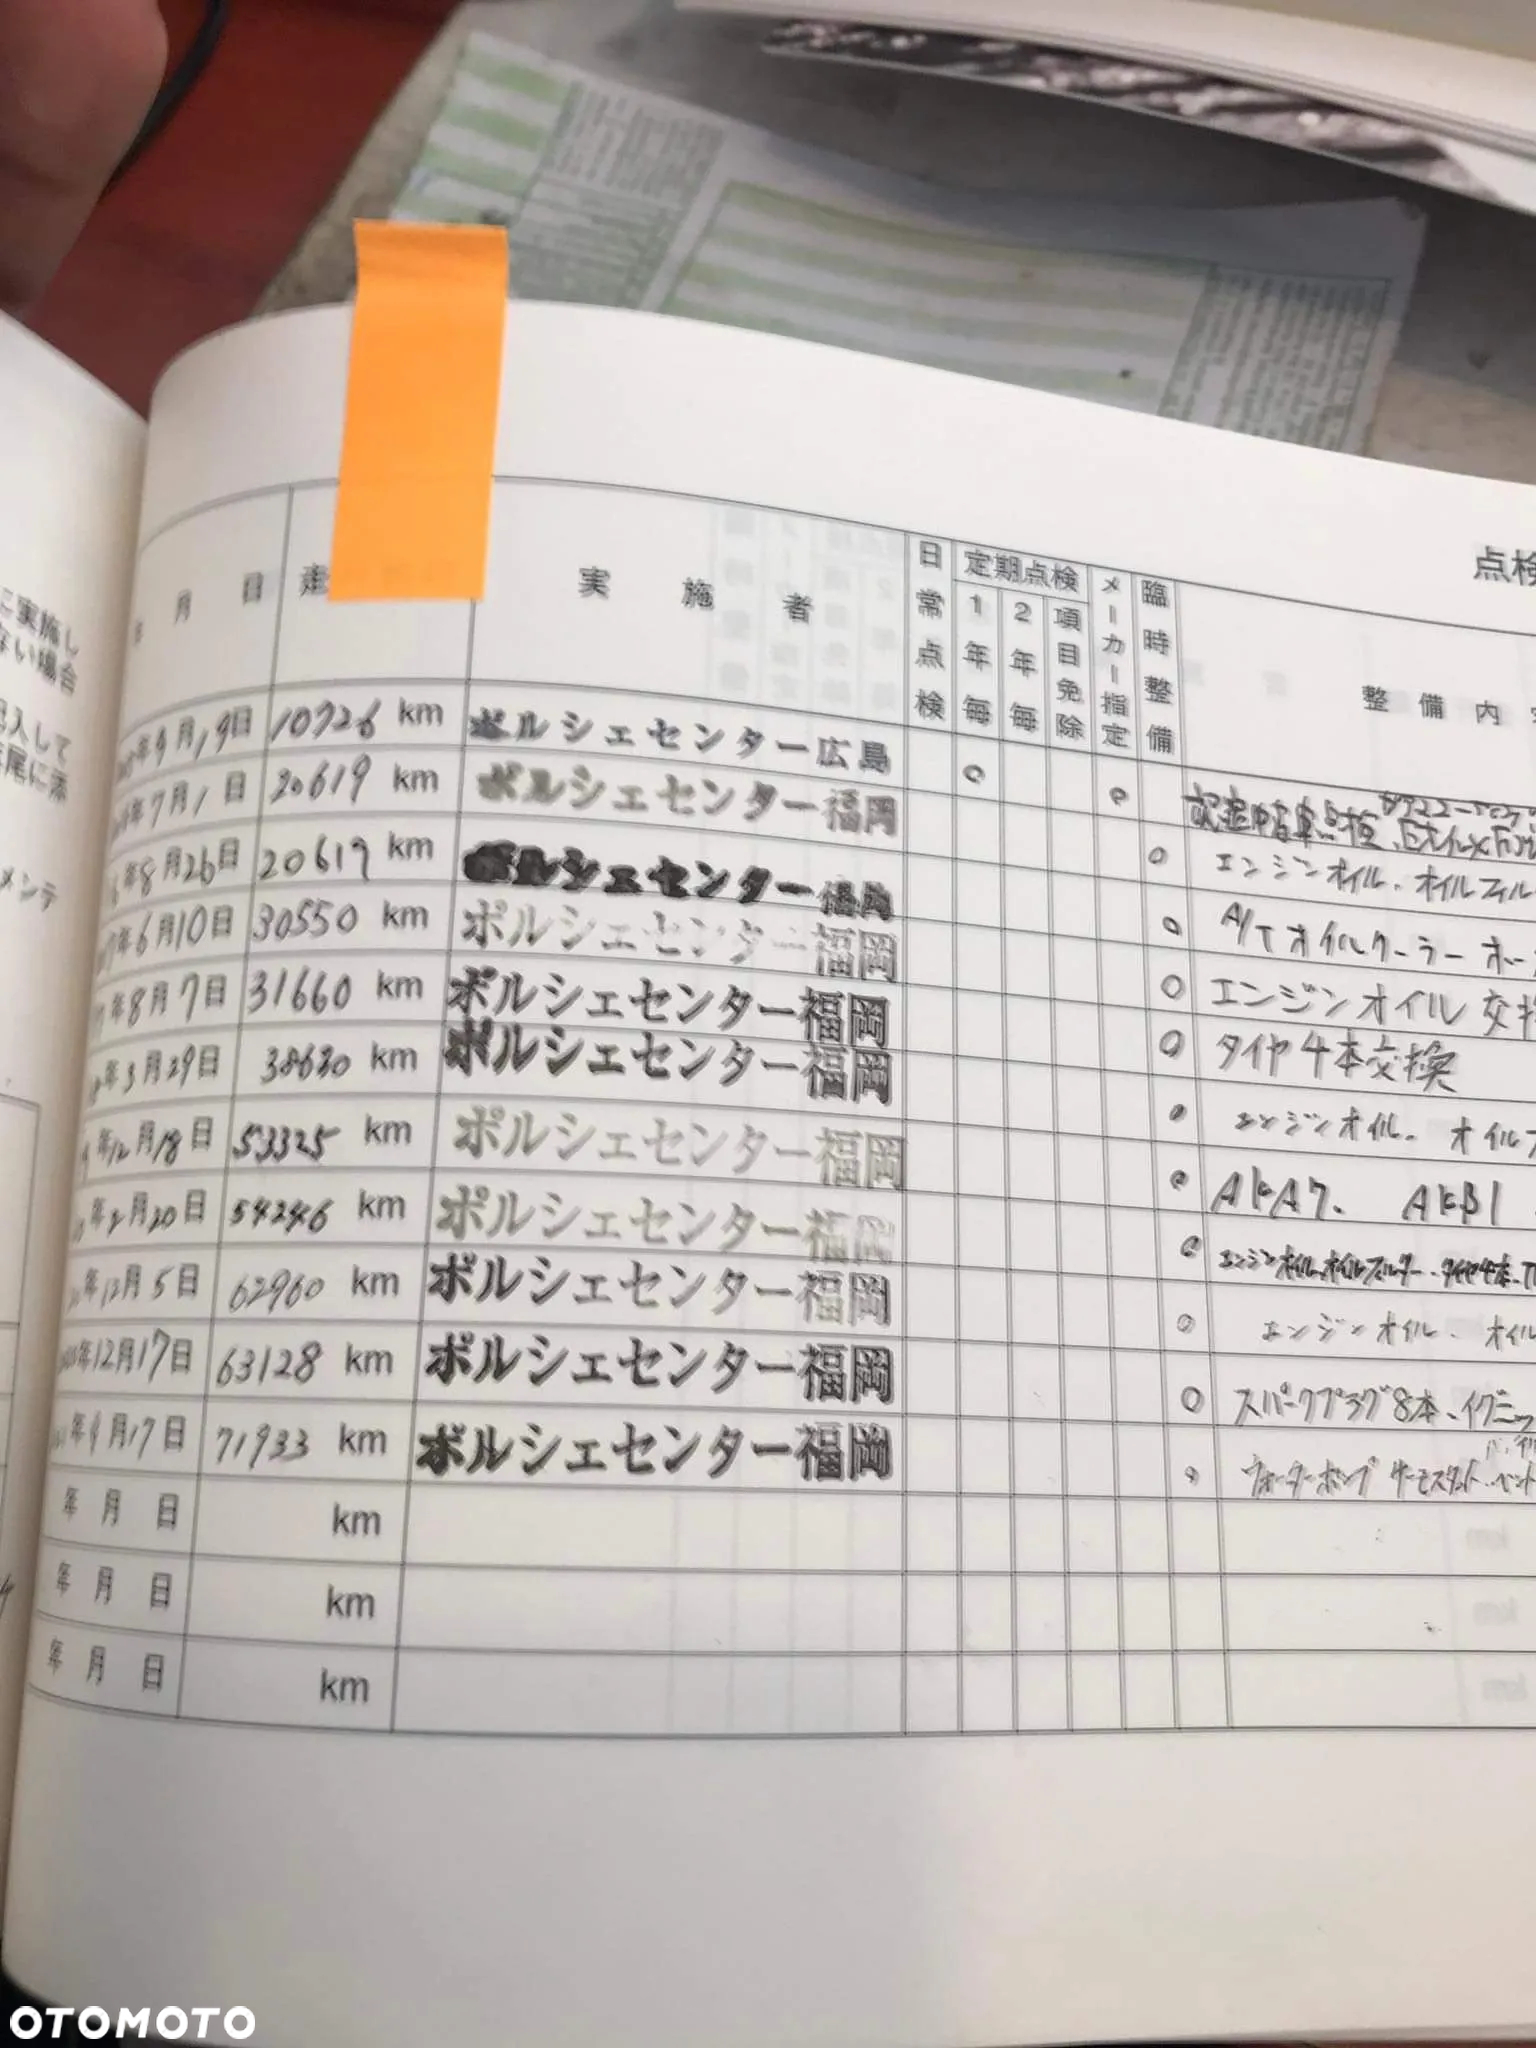 こ実施し
ない場合
記入して
メンテ
点検
年 月 日 走 実 施 者 日常点検 定期点検 1年毎 2年毎 項目免除 メーカー指定 臨時整備 整備内
年9月19日 10726 km ポルシェセンター広島
年7月1日 20619 km ポルシェセンター福岡 認定中古車点検
6年8月26日 20619 km ポルシェセンター福岡 エンジンオイル、オイルフィル
年6月10日 30550 km ポルシェセンター福岡 A/Tオイルクーラー
年8月7日 31660 km ポルシェセンター福岡 エンジンオイル交換
年3月29日 38630 km ポルシェセンター福岡 タイヤ4本交換
年12月18日 53325 km ポルシェセンター福岡 エンジンオイル、オイル
年2月20日 54246 km ポルシェセンター福岡 AKA7、AKB1
年12月5日 62960 km ポルシェセンター福岡 エンジンオイル、オイルフィルター、タイヤ4本、
年12月17日 63128 km ポルシェセンター福岡 エンジンオイル、オイル
年9月17日 71933 km ポルシェセンター福岡 スパークプラグ8本、イグニッ
ウォーターポンプ サーモスタット
年 月 日 km
年 月 日 km
年 月 日 km
OTOMOTO